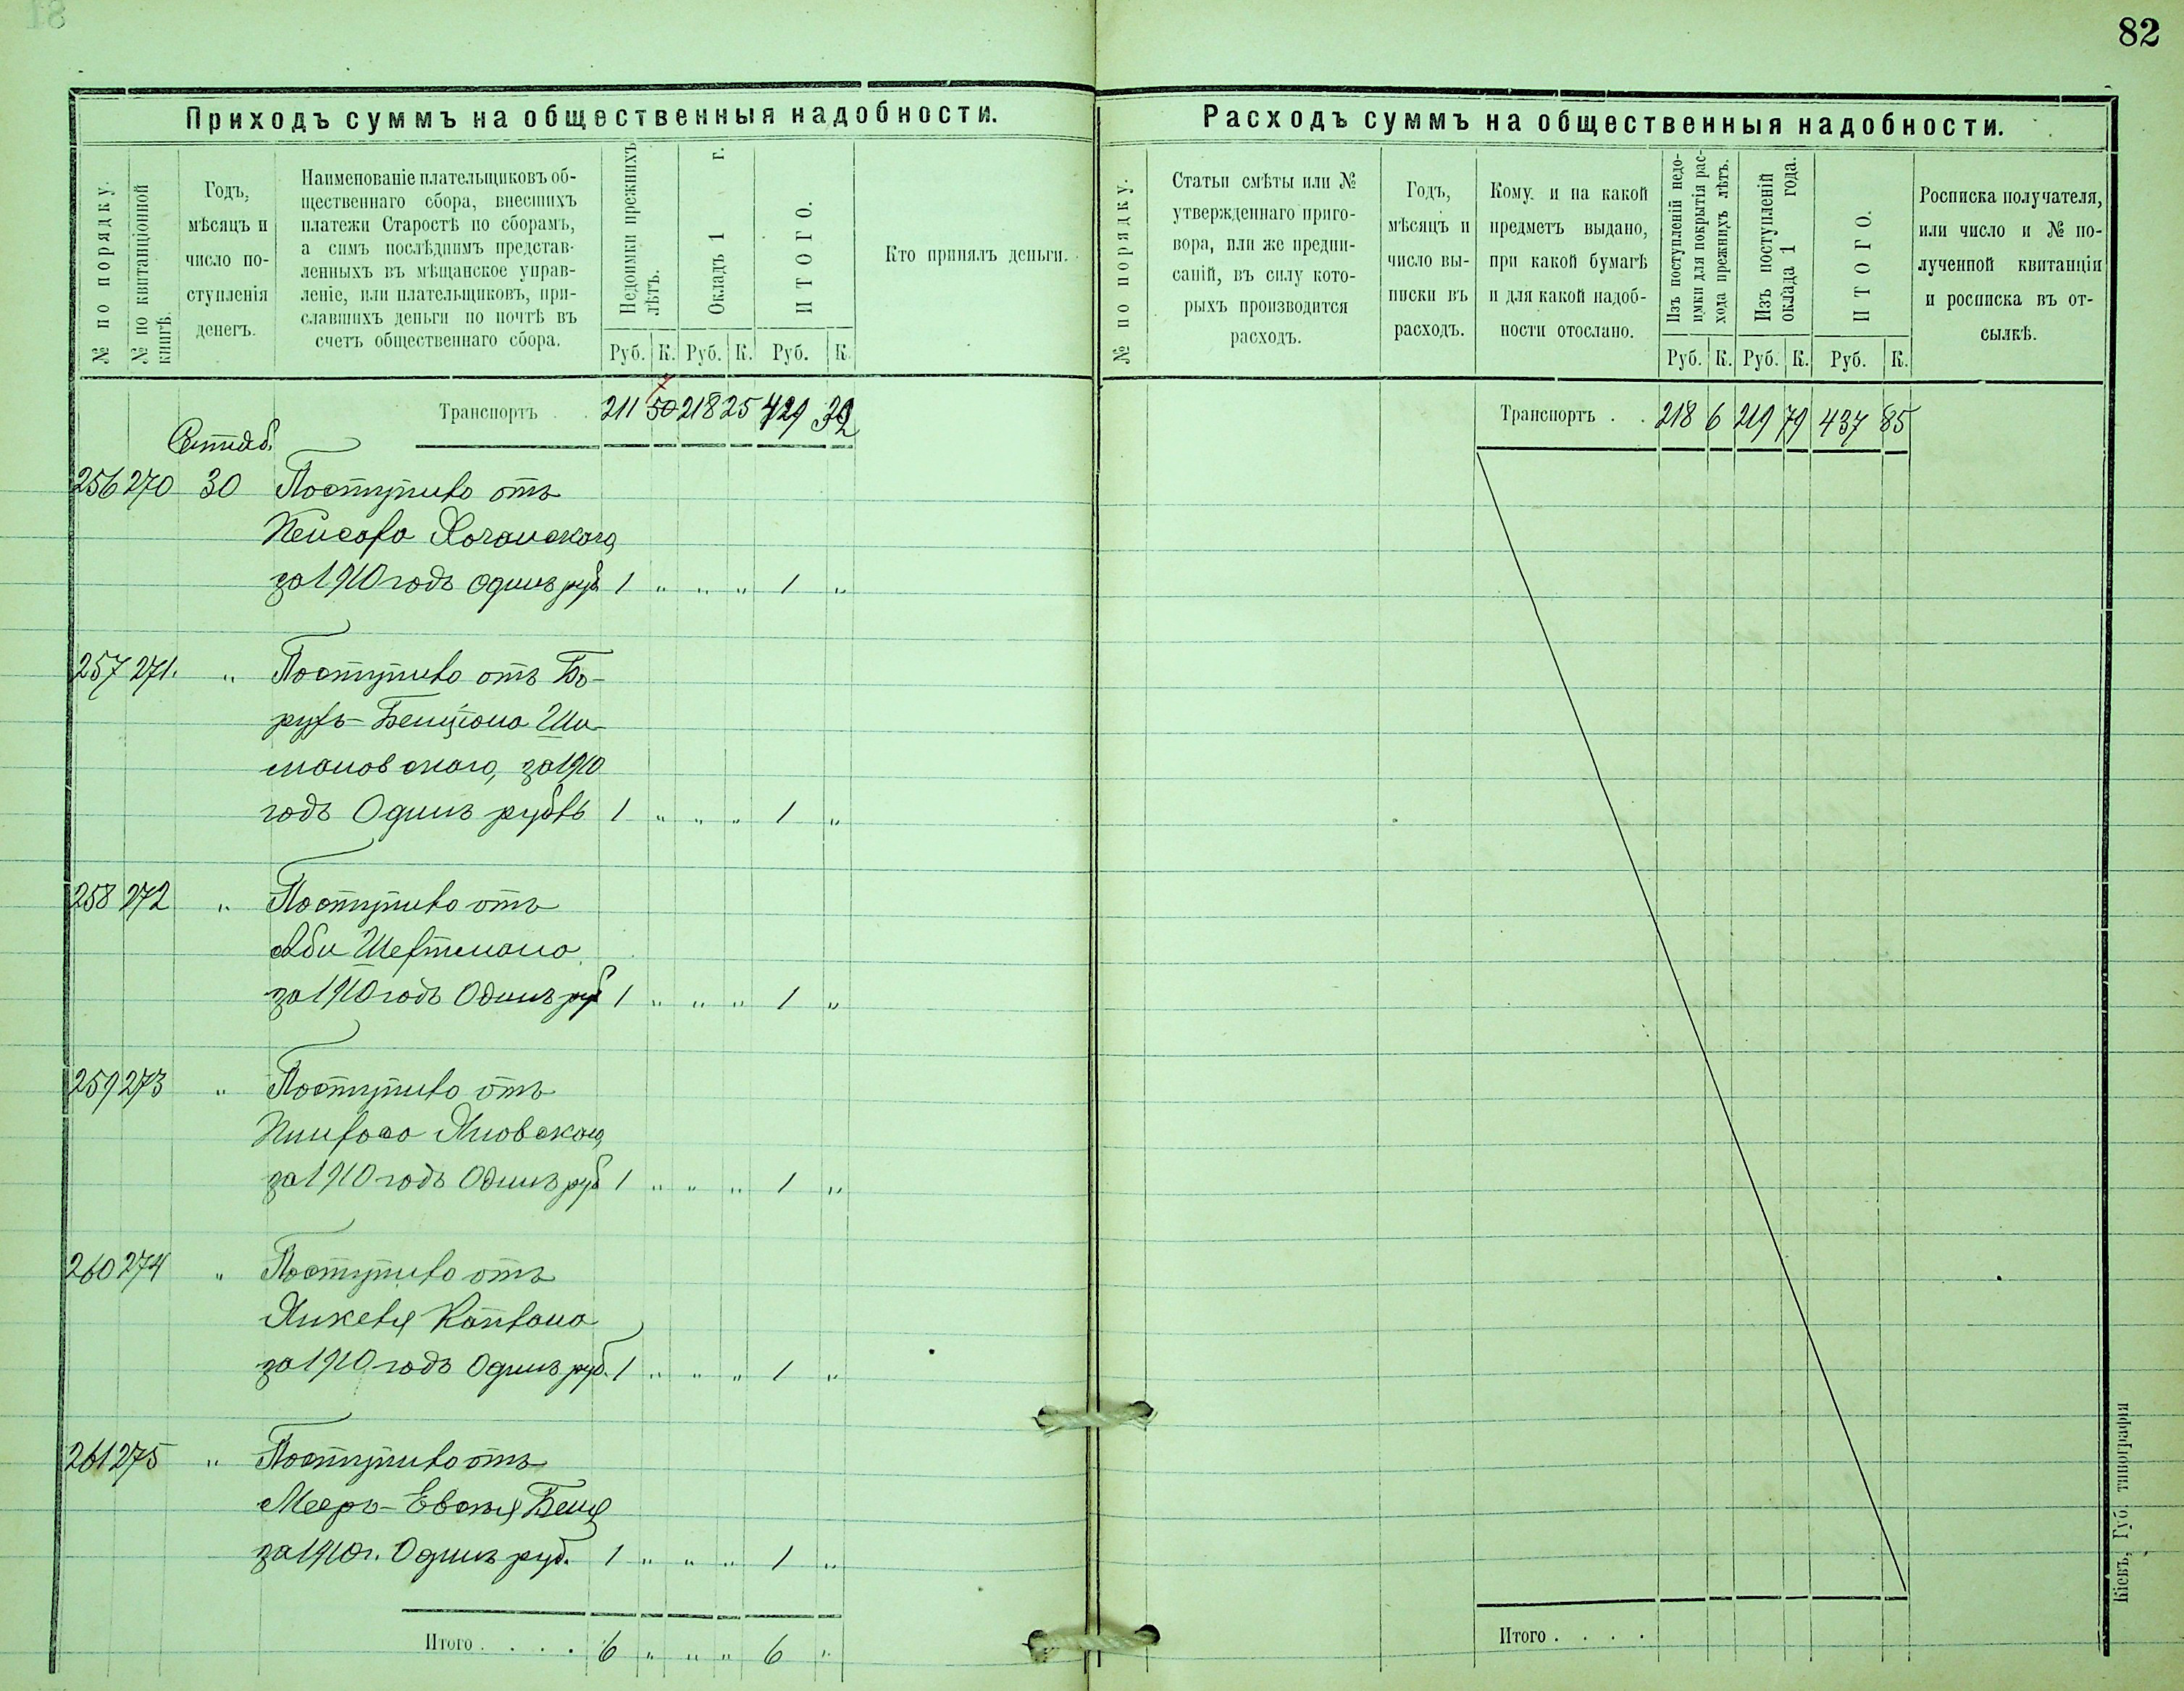 82
Приходъ суммъ на общественныя надобности.
№ по порядку.
№ по квитанціонной
книгѣ.
Годъ,
мѣсяцъ и
число по-
ступленія
денегъ.
Наименованіе плательщиковъ об-
щественнаго сбора, внесшихъ
платежи Старостѣ по сборамъ,
а симъ послѣднимъ представ-
ленныхъ въ мѣщанское управ-
леніе, или плательщиковъ, при-
славшихъ деньги по почтѣ въ
счетъ общественнаго сбора.
Недоимки прежнихъ
лѣтъ.
Окладъ 1 г.
ИТОГО.
Кто принялъ деньги.
Руб. К. Руб. К. Руб. К.
Транспортъ . . 211 50 218 25 429
Сентяб.
256 270 30 Поступило отъ
за 1910 годъ одинъ руб 1 " " " 1 "
257 271. " Поступило отъ Бо-
рухъ-Бенціона Ши-
мановскаго, за 1910
годъ Одинъ рубль 1 " " " 1 "
258 272 " Поступило отъ
Аби Шефтмана
за 1910 годъ Одинъ руб 1 " " " 1 "
259 273 " Поступило отъ
Пинхаса Яновскаго,
за 1910 годъ Одинъ руб 1 " " " 1 "
260 274 " Поступило отъ
Янкеля Каплана
за 1910 годъ Одинъ руб. 1 " " " 1 "
261 275 " Поступило отъ
Мееръ-
за 1910 г. Одинъ руб. 1 " " " 1 "
Итого . . . . 6 " " " 6 "
Расходъ суммъ на общественныя надобности.
№ по порядку.
Статьи смѣты или №
утвержденнаго приго-
вора, или же предпи-
саній, въ силу кото-
рыхъ производится
расходъ.
Годъ,
мѣсяцъ и
число вы-
писки въ
расходъ.
Кому и на какой
предметъ выдано,
при какой бумагѣ
и для какой надоб-
ности отослано.
Изъ поступленій недо-
имки для покрытія рас-
хода прежнихъ лѣтъ.
Изъ поступленій
оклада 1 года.
ИТОГО.
Росписка получателя,
или число и № по-
лученной квитанціи
и росписка въ от-
сылкѣ.
Руб. К. Руб. К. Руб. К.
Транспортъ . . 218 6 219 79 437 85
Итого . . . .
Кіевъ, Губ. типографія